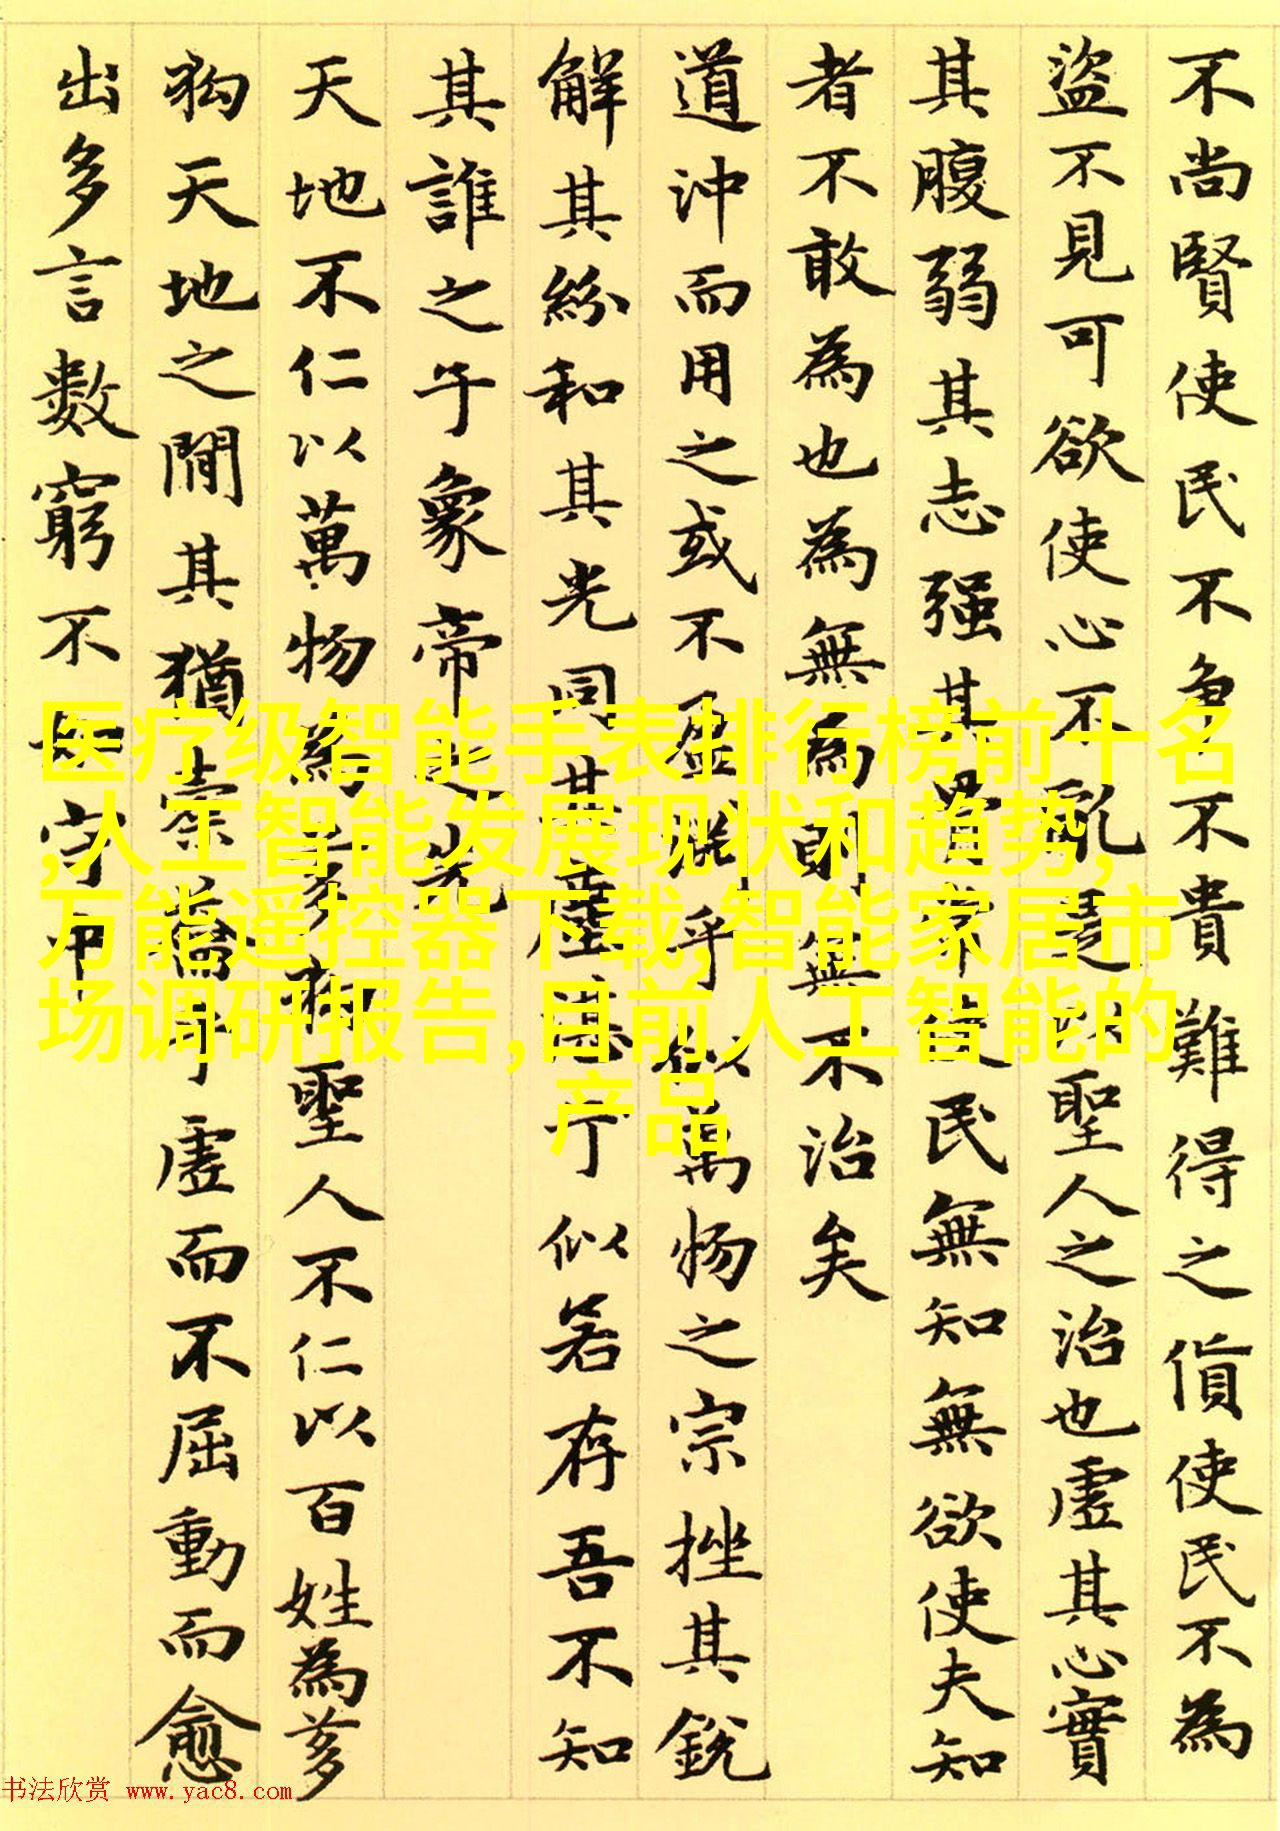 不尚賢使民不争不貴難得之貨使民不為
盜不見可欲使心不亂是以聖人之治也虛其心實
其腹弱其志强其骨常使民無知無欲使夫知
者不敢為也為無為則無不治矣
道沖而用之或不盈淵乎似萬物之宗挫其銳
解其紛和其光同其塵湛乎似若存吾不知
其誰之子象帝之先
天地不仁以萬物為芻狗聖人不仁以百姓為芻
狗天地之間其猶橐籥乎虛而不屈動而愈
出多言數窮不如守中
医疗级智能手表排行榜前十名
,人工智能发展现状和趋势,
万能遥控器下载,智能家居市
场调研报告,目前人工智能的
产品
书法欣赏 www.yac8.com